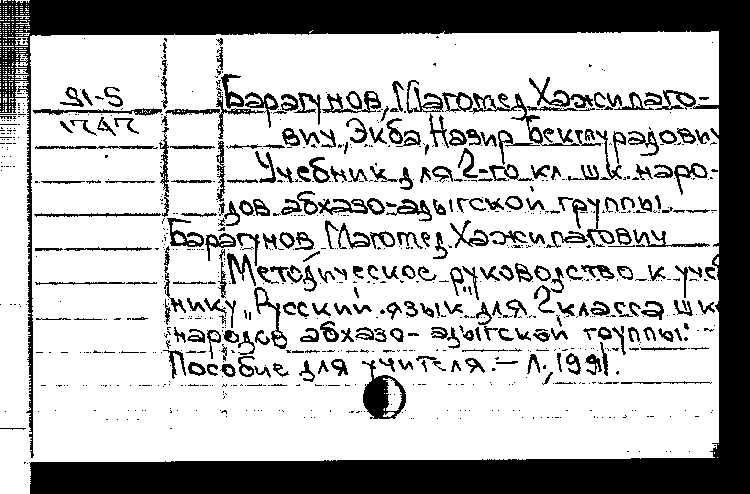 91-5
1747
Барагунов, Магомед Хажипаго-
вич, Экба, Назир Бекмурадович
Учебник для 2-го кл. шк. наро-
дов абхазо-адыгской группы.
Барагунов Магомед Хажипагович
Методическое руководство к учеб
нику „Русский язык" для 2 класса шк
народов абхазо-адыгской группы:
Пособие для учителя. — Л., 1991.